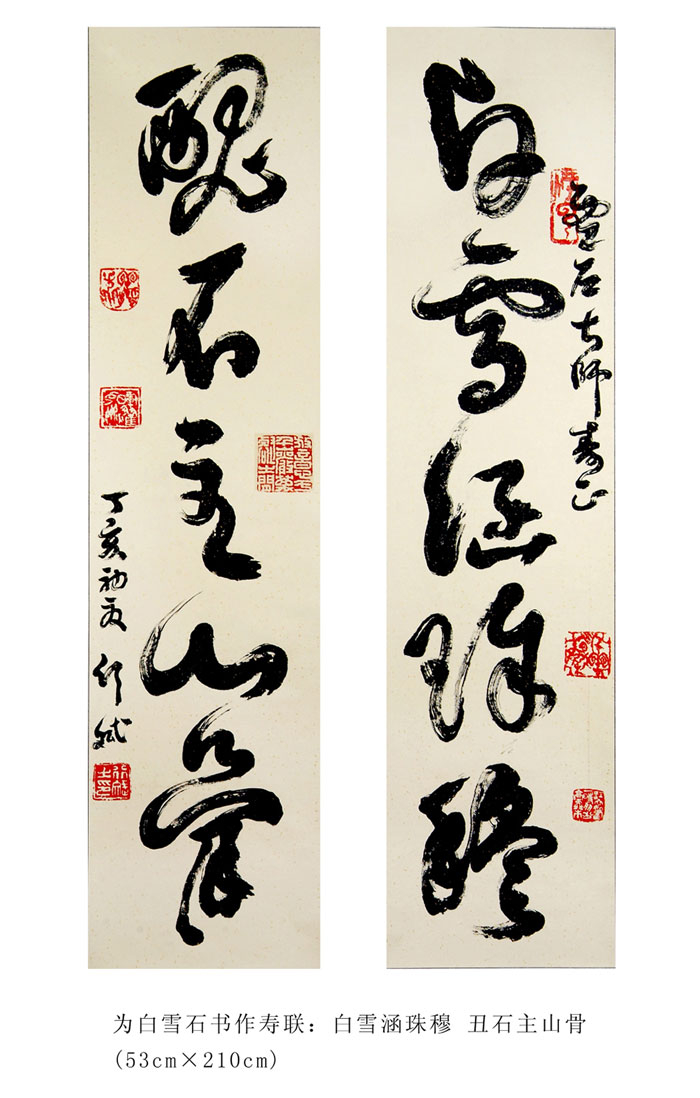 白雪涵珠穆
雪石大師寿正
醜石主山骨
丁亥初夏
为白雪石书作寿联：白雪涵珠穆 丑石主山骨
(53cm×210cm)